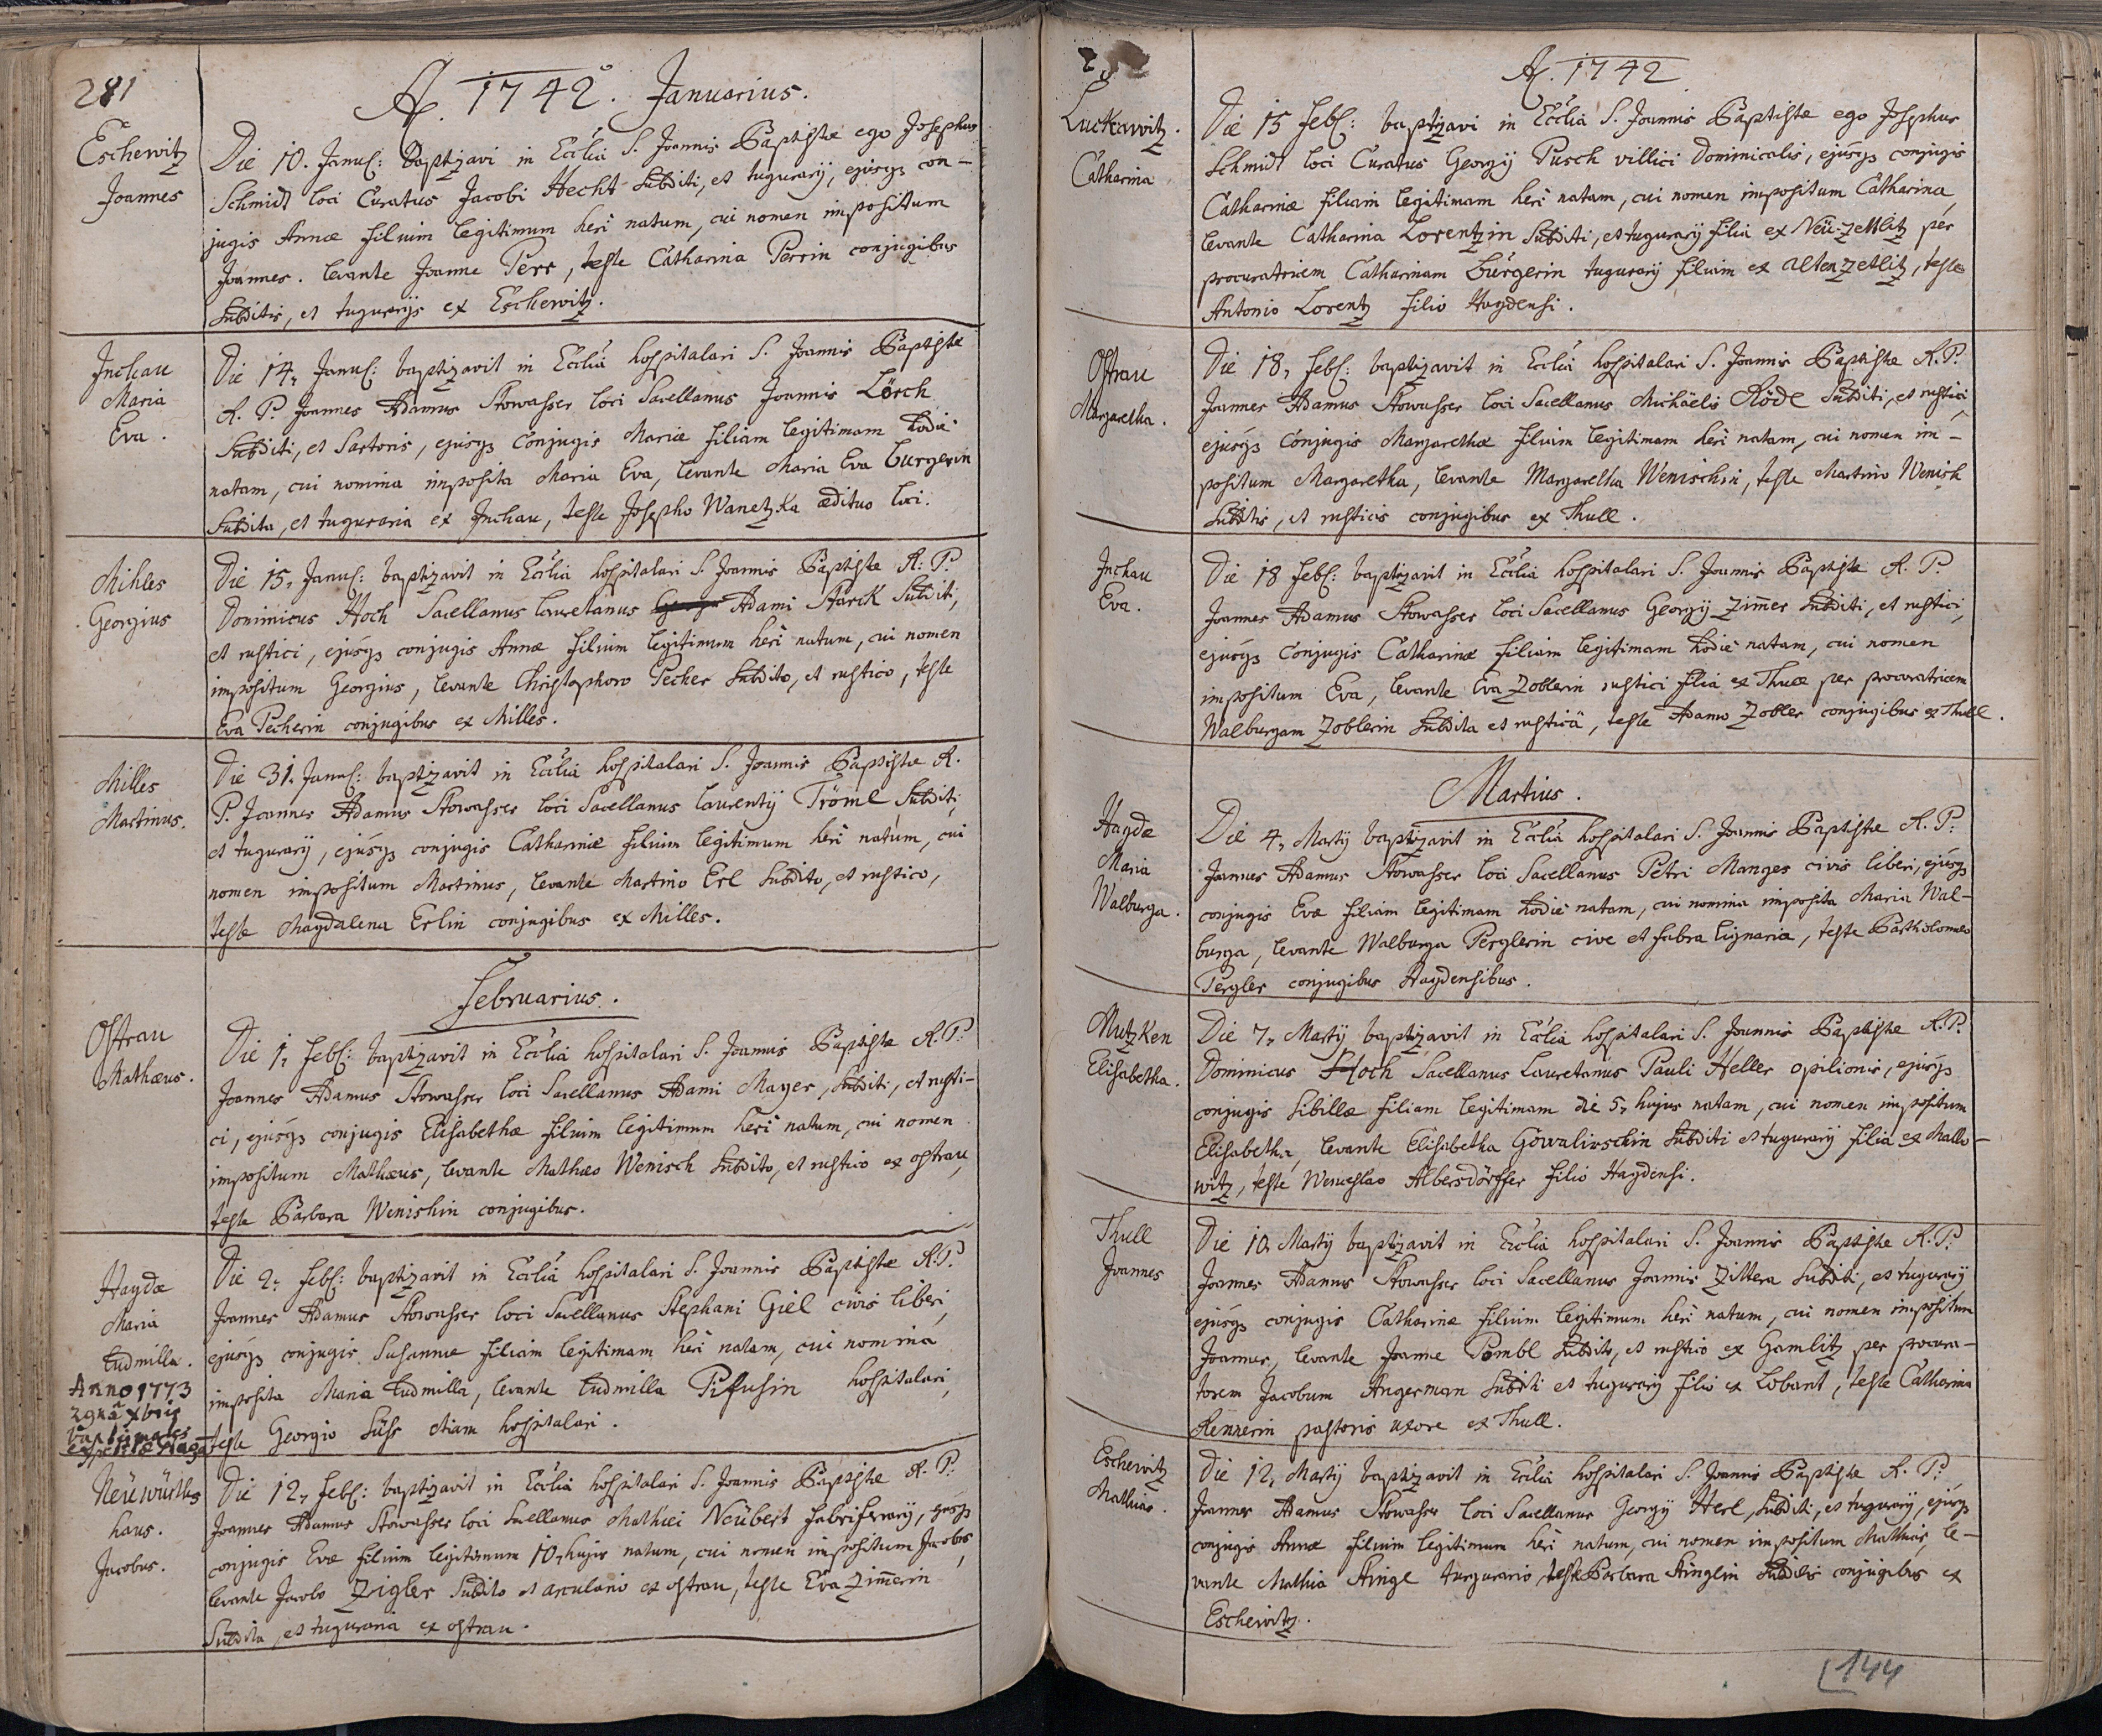 281
A. 1742. Januarius.
Eschewitz
Joannes
Die 10. Janu: Baptizavi in Ecclia S. Joannis Baptistæ ego Josephus
Schmidt loci Curatus Jacobi Hecht Subditi, et tugurarÿ, ejúsq3 con-
jugis Annæ filium legitimum heri natum, cui nomen impositum
Joannes. levante Joanne Perr, teste Catharina Perrin conjugibus
Subditis, et tugurarÿs ex Eschewitz.
Inchau
Maria
Eva.
Die 14, Janu: baptizavit in Ecclia hospitalari S. Joannis Baptistæ
R. P. Joannes Adamus Stowasser loci Sacellanus Joannis Lörch
Subditi, et Sartoris, ejusq3 Conjugis Mariæ filiam legitimam hodie
natam, cui nomina imposita Maria Eva, levante Maria Eva Burgerin
Subdita, et tuguraria ex Inchau, teste Josepho Wanetzka ædituo loci.
Mihles
Georgius
Die 15, Janu: baptizavit in Ecclia hospitalari S. Joannis Baptistæ R: P.
Dominicus Hoch Sacellanus Lauretanus Adami Starck Subditi,
et rustici, ejúsq3 conjugis Annæ filium legitimum heri natum, cui nomen
impositum Georgius, levante Christophoro Pecher Subdito, et rustico, teste
Eva Pecherin conjugibus ex Milles.
Milles
Martinus.
Die 31. Janu: baptizavit in Ecclia hospitalari S. Joannis Baptistæ R.
P. Joannes Adamus Stowasser loci Sacellanus Laurentÿ Tröml Subditi,
et tugurarÿ, ejúsq3 conjugis Catharinæ filium legitimum heri natúm, cui
nomen impositum Martinus, levante Martino Erl Subdito, et rustico,
teste Magdalena Erlin conjugibus ex Milles.
Februarius.
Ostrau
Mathæus.
Die 1, Feb: baptizavit in Ecclia hospitalari S. Joannis Baptistæ R.P.
Joannes Adamus Stowasser loci Sacellanus Adami Mayer, Subditi, et rusti-
ci, ejusq3 conjugis Elisabethæ filium legitimum heri natum, cui nomen
impositum Mathæus, levante Mathæo Wenisch Subdito, et rustico ex ostrau,
teste Barbara Wenishin conjugibus.
Haydæ
Maria
Ludmilla.
Anno 1773
Die 2, Feb: baptizavit in Ecclia hospitalari S. Joannis Baptistæ R.P.
Joannes Adamus Stowasser loci Sacellanus Stephani Giel civis liberi,
ejusq3 conjugis Susannæ filiam legitimam heri natam, cui nomina
imposita Maria Ludmilla, levante Ludmilla hospitalari,
teste Georgio Süss etiam hospitalari.
Neüwürths
haus.
Jacobus.
Die 12, Feb: baptizavit in Ecclia hospitalari S. Joannis Baptistæ R. P.
Joannes Adamus Stowasser loci Sacellanus Mathiei Neübert fabriferrarÿ, ejusq3
conjugis Evæ filium legitimum 10, hujus natum, cui nomen impositum Jacobus,
levante Jacobo Zigler Subdito et ex ostrau, teste Eva Zimerin
Subdita, et tuguraria ex ostrau.
A. 1742
Luckawitz.
Catharina
Die 15 Feb: baptizavi in Ecclia S. Joannis Baptistæ ego Josephus
Schmidt loci Curatus Georgÿ Pusch villici Dominicalis, ejúsq3 conjugis
Catharinæ filiam legitimam heri natam, cui nomen impositum Catharina,
levante Catharina Lorentzin Subditi, et tugurarÿ filia ex Neü-Zettlitz per
procuratricem Catharinam Búrgerin tugurarÿ filiam ex alten Zetlitz, teste
Antonio Lorentz filio Haydensi.
Ostrau
Margaretha.
Die 18, Feb: baptizavit in Ecclia hospitalari S. Joannis Baptistæ R.P.
Joannes Adamus Stowasser loci Sacellanus Michäelis Röde Subditi, et rustici,
ejúsq3 Conjugis Margarethæ filiam legitimam heri natam, cui nomen im-
positum Margaretha, levante Margaretha Wenischin, teste Martino Wenish
Subditis, et rusticis conjugibus ex Thull.
Inchau
Eva.
Die 18 Feb: baptizavit in Ecclia hospitalari S. Joannis Baptistæ R.P.
Joannes Adamus Stowasser loci Sacellanus Georgÿ Zimer Subditi, et rustici,
ejúsq3 Conjugis Catharinæ filiam legitimam hodie natam, cui nomen
impositum Eva, levante Eva Zoblerin rustici filia ex Thull per procuratricem
Walburgam Zoblerin Subdita et rusticâ, teste Adamo Zobler conjugibus ex Thull.
Martius.
Haydæ
Maria
Walburga.
Die 4, Martÿ baptizavit in Ecclia hospitalari S. Joannis Baptistæ R.P:
Joannes Adamus Stowasser loci Sacellanus Petri Manges civis liberi, ejúsq3
conjugis Evæ filiam legitimam hodie natam, cui nomina imposita Maria Wal-
burga, levante Walburga Perglerin cive et fabra lignaria, teste Bartholomeo
Pergler conjugibus Haydensibus.
Mutzken
Elisabetha.
Die 7, Martÿ baptizavit in Ecclia hospitalari S. Joannis Baptistæ R.P.
Dominicus Hoch Sacellanus Lauretanus Pauli Heller opilionis, ejusq3
conjugis Sibillæ filiam legitimam die 5, hujus natam, cui nomen impositum
Elisabetha, levante Elisabetha Gowalirschin Subditi et tugurarÿ filia ex Mallo-
witz, teste Wenceslao Albersdörffer filio Haydensi.
Thull
Joannes
Die 10, Martÿ baptizavit in Ecclia hospitalari S. Joannis Baptistæ R.P.
Joannes Adamus Stowasser loci Sacellanus Joannis Zittera Subditi, et tugurarÿ
ejúsq3 conjugis Catharinæ filium legitimum heri natum, cui nomen impositum
Joannes, levante Joanne Pombl Subdito, et rustico ex Gamlitz per procura-
torem Jacobum Angerman Subditi et tugurarÿ filio ex Lobant, teste Catharina
Rennerin pastoris uxore ex Thull.
Eschewitz
Mathias.
Die 12, Martÿ baptizavit in Ecclia hospitalari S. Joannis Baptistæ R. P.
Joannes Adamus Stowasser loci Sacellanus Georgÿ Herl, Subditi, et tugurarÿ, ejúsq3
conjugis Annæ filium legitimum heri natum, cui nomen impositum Mathias, le-
vante Mathia Stingl turgurario, teste Barbara Stinglin Subditis conjugibus ex
Eschewitz.
144